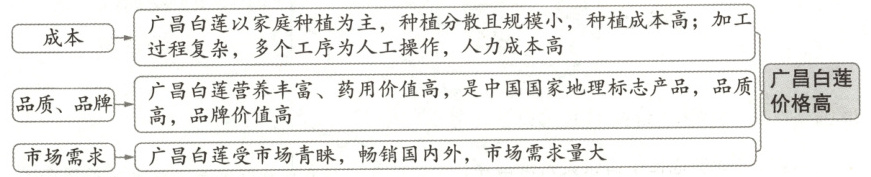 成本
广昌白莲以家庭种植为主，种植分散且规模小，种植成本高；加工
过程复杂，多个工序为人工操作，人力成本高
品质、品牌
广昌白莲营养丰富、药用价值高，是中国国家地理标志产品，品质
高，品牌价值高
市场需求
广昌白莲受市场青睐，畅销国内外，市场需求量大
广昌白莲
价格高